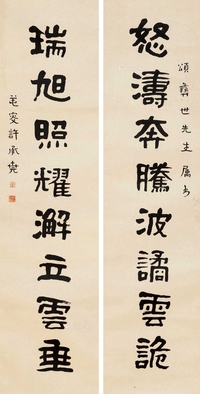 頌彝世先生屬书
怒濤奔騰波譎雲詭
瑞旭照耀澥立雲垂
芚叟許承堯